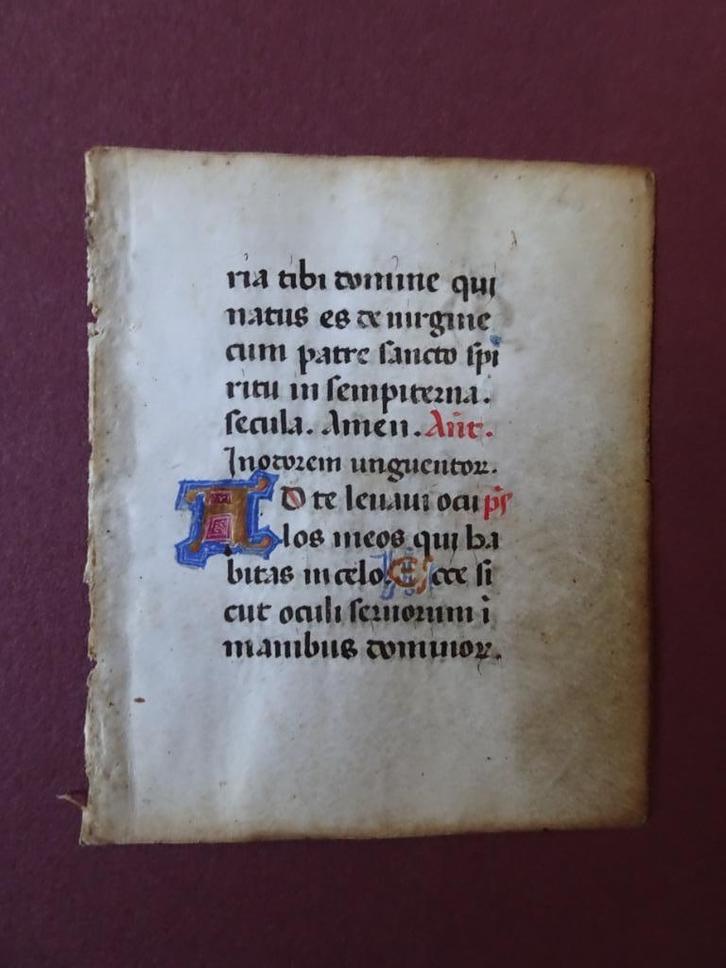 ria tibi domine qui
natus es de uirgine
cum patre sancto spi
ritu in sempiterna.
secula. Amen. Añt.
In odorem unguentor.
AD te leuaui ocu ps
los meos qui ha
bitas in celo. Ecce si
cut oculi seruorum i
manibus dominor.